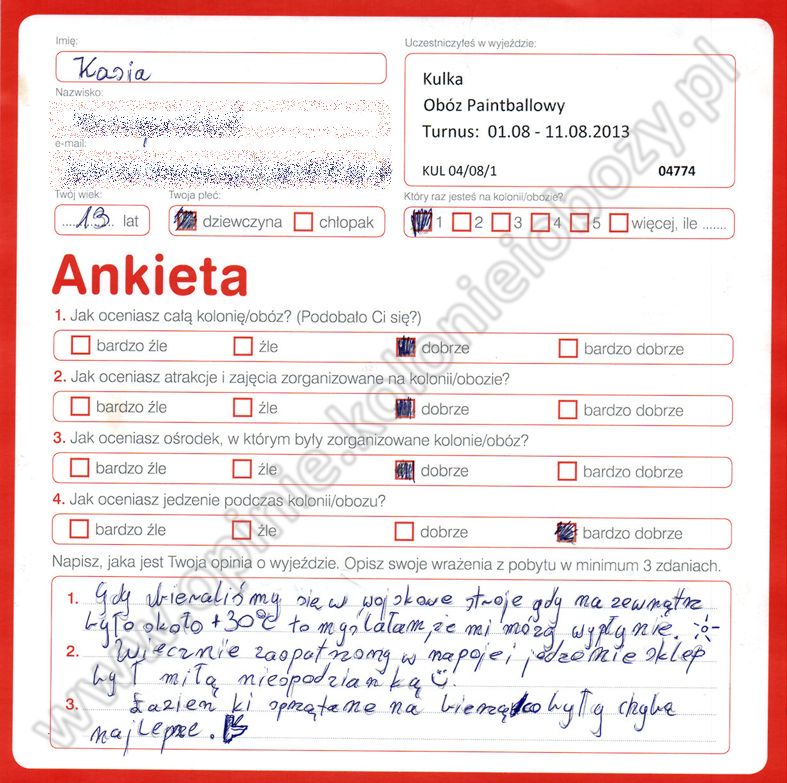 Imię:
Kasia
Nazwisko:
e-mail:
Twój wiek:
13 lat
Twoja płeć:
dziewczyna chłopak
Uczestniczyłeś w wyjeździe:
Kulka
Obóz Paintballowy
Turnus: 01.08 - 11.08.2013
KUL 04/08/1 04774
Który raz jesteś na kolonii/obozie?
1 2 3 4 5 więcej, ile .......
Ankieta
1. Jak oceniasz całą kolonię/obóz? (Podobało Ci się?)
bardzo źle źle dobrze bardzo dobrze
2. Jak oceniasz atrakcje i zajęcia zorganizowane na kolonii/obozie?
bardzo źle źle dobrze bardzo dobrze
3. Jak oceniasz ośrodek, w którym były zorganizowane kolonie/obóz?
bardzo źle źle dobrze bardzo dobrze
4. Jak oceniasz jedzenie podczas kolonii/obozu?
bardzo źle źle dobrze bardzo dobrze
Napisz, jaka jest Twoja opinia o wyjeździe. Opisz swoje wrażenia z pobytu w minimum 3 zdaniach.
1. Gdy bieraliśmy się w wojskowe stroje gdy na zewnątrz
było około +30°C to myślałam, że mi mózg wypłynie.
2. Wiecznie zaopatrzony w napoje i jedzenie sklep
był miłą niespodzianką
3. Łazienki sprzątane na bierząco były chyba
najlepsze.
www.opinie.kolonieiobozy.pl